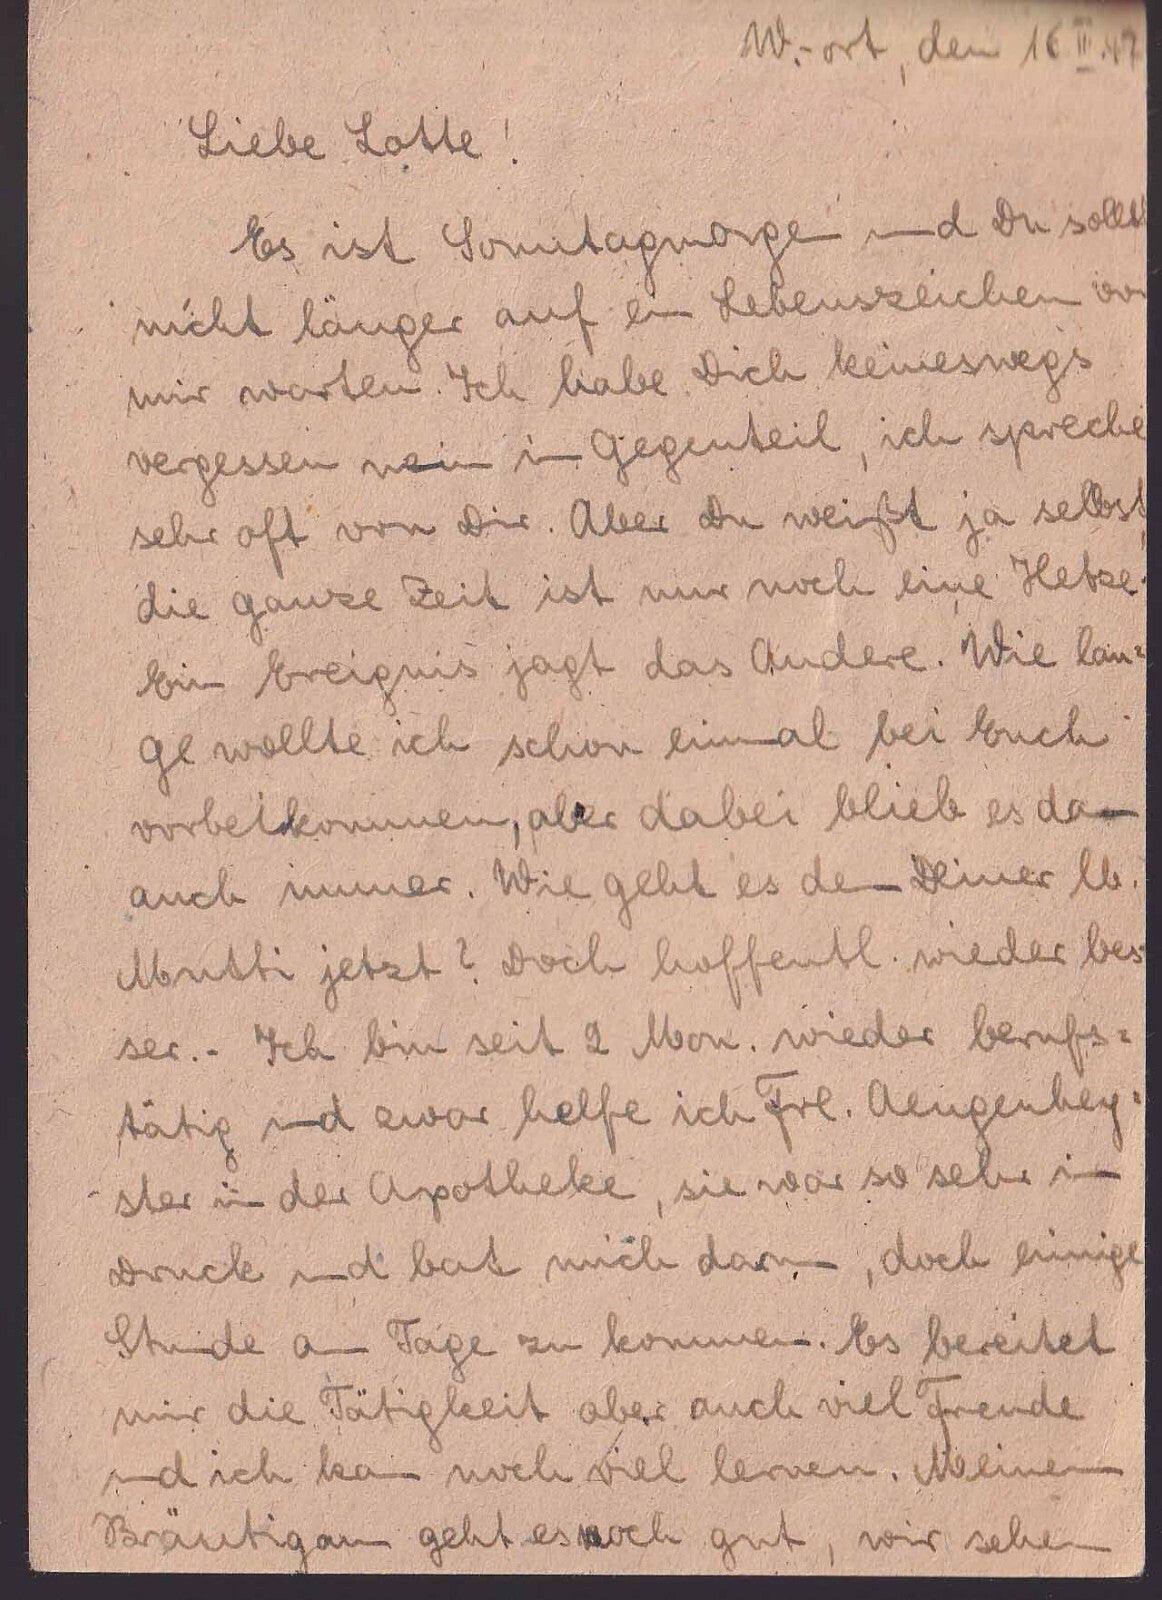 W.-ort, den 16 II. 47
Liebe Lotte!
Es ist Sonntagmorgen und Du sollst
nicht länger auf ein Lebenszeichen von
mir warten. Ich habe Dich keineswegs
vergessen nein im Gegenteil, ich spreche
sehr oft von Dir. Aber Du weißt ja selbst,
die ganze Zeit ist nur noch eine Hetze.
Ein Ereignis jagt das Andere. Wie lan=
ge wollte ich schon einmal bei Euch
vorbeikommen, aber dabei blieb es dann
auch immer. Wie geht es denn Deiner lb.
Mutti jetzt? Doch hoffentl. wieder bes
ser.- Ich bin seit 2 Mon. wieder berufs=
tätig und zwar helfe ich Frl. Aengenhey=
ster in der Apotheke, sie war so sehr im
Druck und bat mich darum, doch einige
Stunde am Tage zu kommen. Es bereitet
mir die Tätigkeit aber auch viel Freude
und ich kann noch viel lernen. Meinem
Bräutigam geht es noch gut, wir sehen